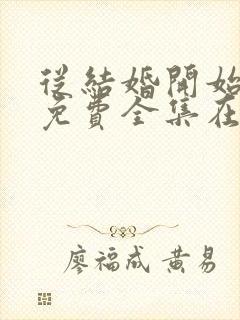 從結婚開始
免費全集在
廖福成 黃易